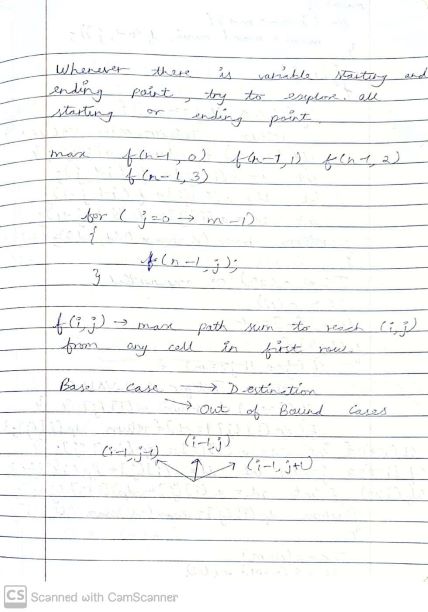 Whenever there is variable starting and
ending point, try to explore all
starting or ending point.
max f(n-1, 0) f(n-1, 1) f(n-1, 2)
f(n-1, 3)
for ( j=0 → m-1)
{
f(n-1, j);
}
f(i, j) → max path sum to reach (i, j)
from any cell in first row.
Base case → Destination
→ Out of Bound Cases
(i-1, j-1) (i-1, j) (i-1, j+1)
CS Scanned with CamScanner